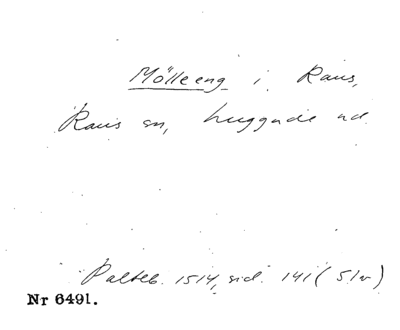 Mölleeng i Raus,
Raus sn, Luggude hd.
Palteb. 1514, sid. 141 (51v)
Nr 6491.